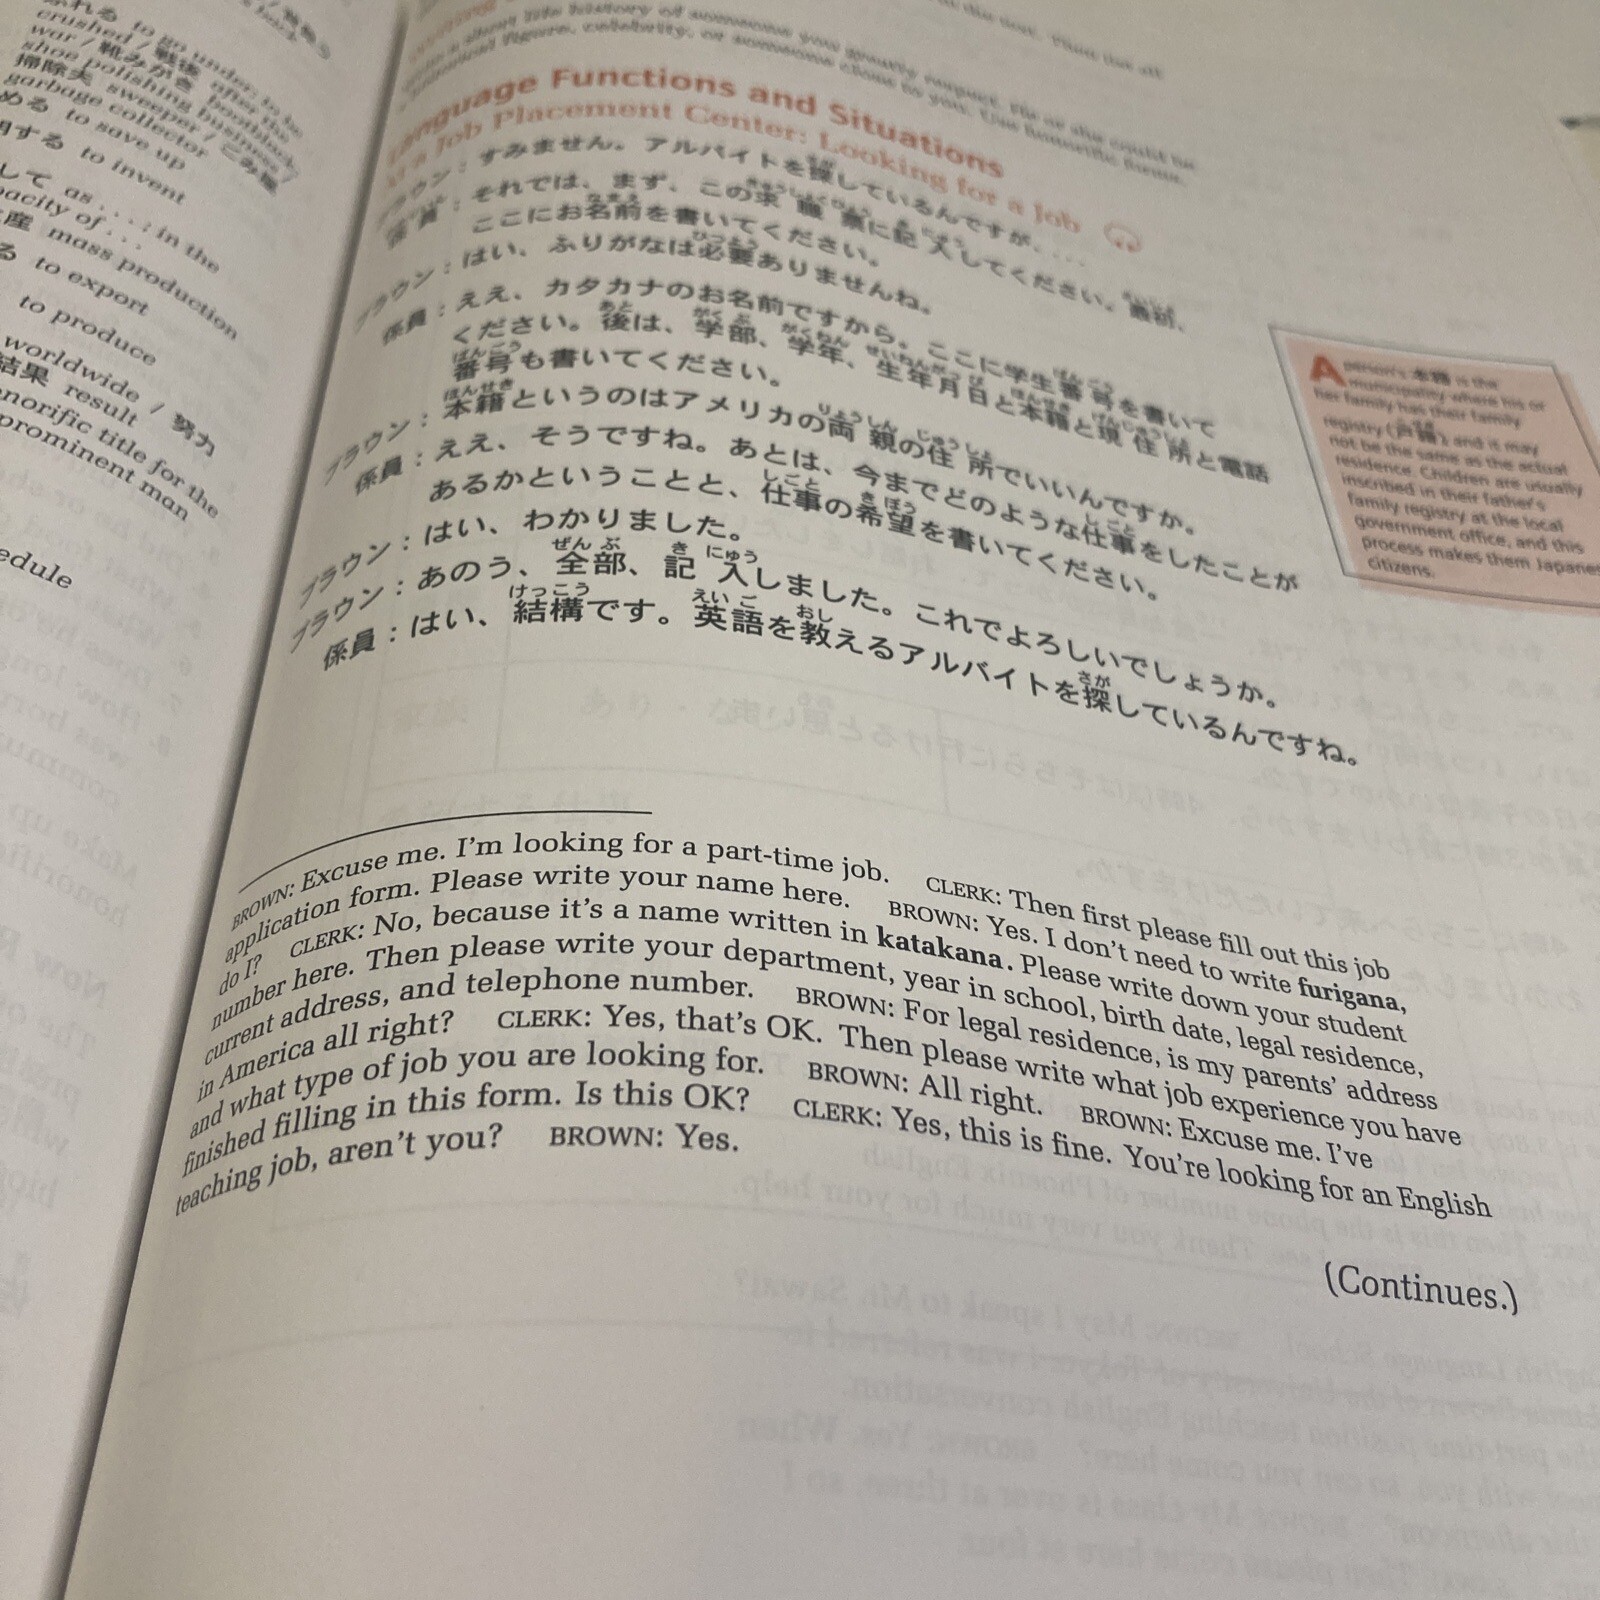 ふれる to go under; to be
crushed / 戦後 after the
war / 靴みがき bootblack;
shoe polishing business /
掃除夫 sweeper / ごみ屋
garbage collector
める to save up
明する to invent
して as . . . ; in the
pacity of . . .
産 mass production
る to export
to produce
worldwide / 努力
結果 result
honorific title for the
prominent man
edule
a short life history of someone you greatly respect. He or she could be
a historical figure, celebrity, or someone close to you. Use honorific forms.
Language Functions and Situations
At a Job Placement Center: Looking for a Job
ブラウン：すみません。アルバイトを探しているんですが、. . .
係員：それでは、まず、この求職票に記入してください。最初、
ここにお名前を書いてください。
ブラウン：はい、ふりがなは必要ありませんね。
係員：ええ、カタカナのお名前ですから。ここに学生番号を書いて
ください。後は、学部、学年、生年月日と本籍と現住所と電話
番号も書いてください。
ブラウン：本籍というのはアメリカの両親の住所でいいんですか。
係員：ええ、そうですね。あとは、今までどのような仕事をしたことが
あるかということと、仕事の希望を書いてください。
ブラウン：はい、わかりました。
ブラウン：あのう、全部、記入しました。これでよろしいでしょうか。
係員：はい、結構です。英語を教えるアルバイトを探しているんですね。
A person's 本籍 is the
municipality where his or
her family has their family
registry (戸籍), and it may
not be the same as the actual
residence. Children are usually
inscribed in their father's
family registry at the local
government office, and this
process makes them Japanese
citizens.
BROWN: Excuse me. I'm looking for a part-time job. CLERK: Then first please fill out this job
application form. Please write your name here. BROWN: Yes. I don't need to write furigana,
do I? CLERK: No, because it's a name written in katakana. Please write down your student
number here. Then please write your department, year in school, birth date, legal residence,
current address, and telephone number. BROWN: For legal residence, is my parents' address
in America all right? CLERK: Yes, that's OK. Then please write what job experience you have
and what type of job you are looking for. BROWN: All right. BROWN: Excuse me. I've
finished filling in this form. Is this OK? CLERK: Yes, this is fine. You're looking for an English
teaching job, aren't you? BROWN: Yes.
(Continues.)